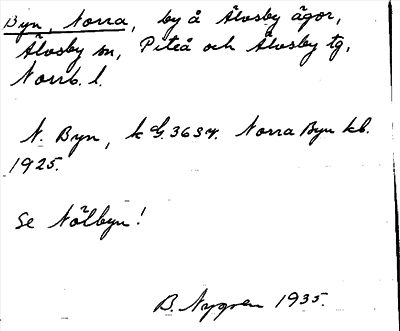 Byn, Norra, by å Älvsby ägor,
Älvsby sn, Piteå och Älvsby tg,
Norrb. l.
N. Byn, k G. 3634. Norra Byn kb.
1925.
Se Nölbyn!
B. Nygren 1935.